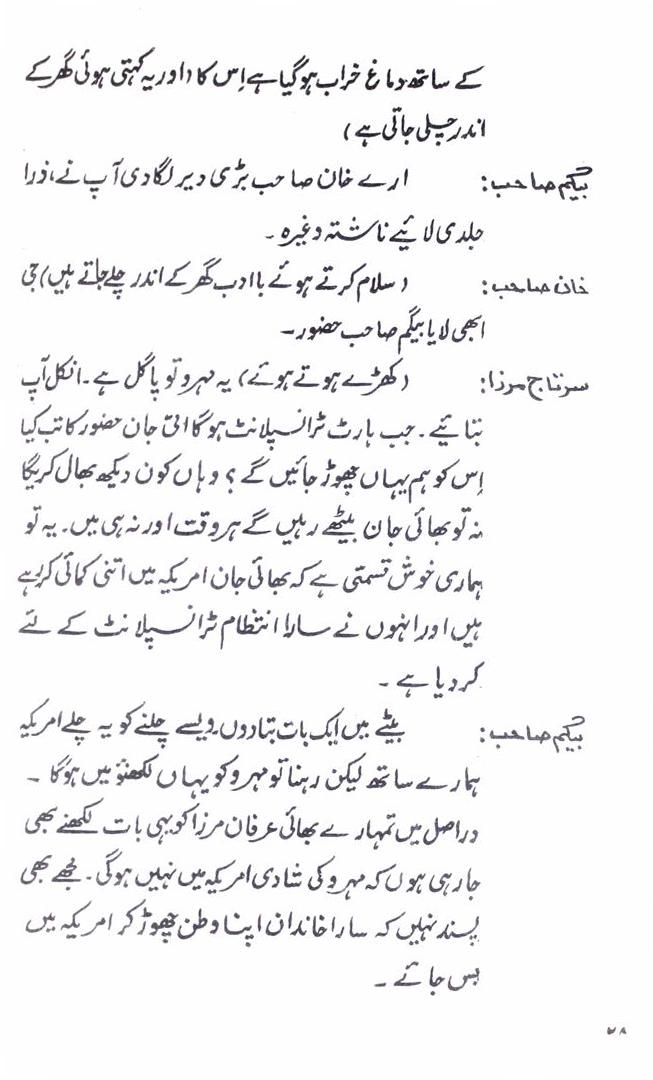 کے ساتھ دماغ خراب ہو گیا ہے اِس کا (اور یہ کہتی ہوئی گھر کے
اندر چلی جاتی ہے)
بیگم صاحب: ارے خان صاحب بڑی دیر لگا دی آپ نے، ذرا
جلدی لائیے ناشتہ وغیرہ ۔
خان صاحب: (سلام کرتے ہوئے باادب گھر کے اندر چلے جاتے ہیں) جی
ابھی لایا بیگم صاحب حضور ۔
سرتاج مرزا: (کھڑے ہوتے ہوئے) یہ مہرو تو پاگل ہے ۔ انکل آپ
بتائیے ۔ جب ہارٹ ٹرانسپلانٹ ہوگا ابّی جان حضور کا تب کیا
اِس کو ہم یہاں چھوڑ جائیں گے ؟ وہاں کون دیکھ بھال کریگا
نہ تو بھائی جان بیٹھے رہیں گے ہر وقت اور نہ ہی میں ۔ یہ تو
ہماری خوش قسمتی ہے کہ بھائی جان امریکہ میں اتنی کمائی کر رہے
ہیں اور انہوں نے سارا انتظام ٹرانسپلانٹ کے لئے
کر دیا ہے ۔
بیگم صاحب: بیٹے میں ایک بات بتا دوں ۔ ویسے چلنے کو یہ چلے امریکہ
ہمارے ساتھ لیکن رہنا تو مہرو کو یہاں لکھنؤ میں ہوگا ۔
دراصل میں تمہارے بھائی عرفان مرزا کو یہی بات لکھنے بھی
جا رہی ہوں کہ مہرو کی شادی امریکہ میں نہیں ہوگی ۔ مجھے بھی
پسند نہیں کہ سارا خاندان اپنا وطن چھوڑ کر امریکہ میں
بس جائے ۔